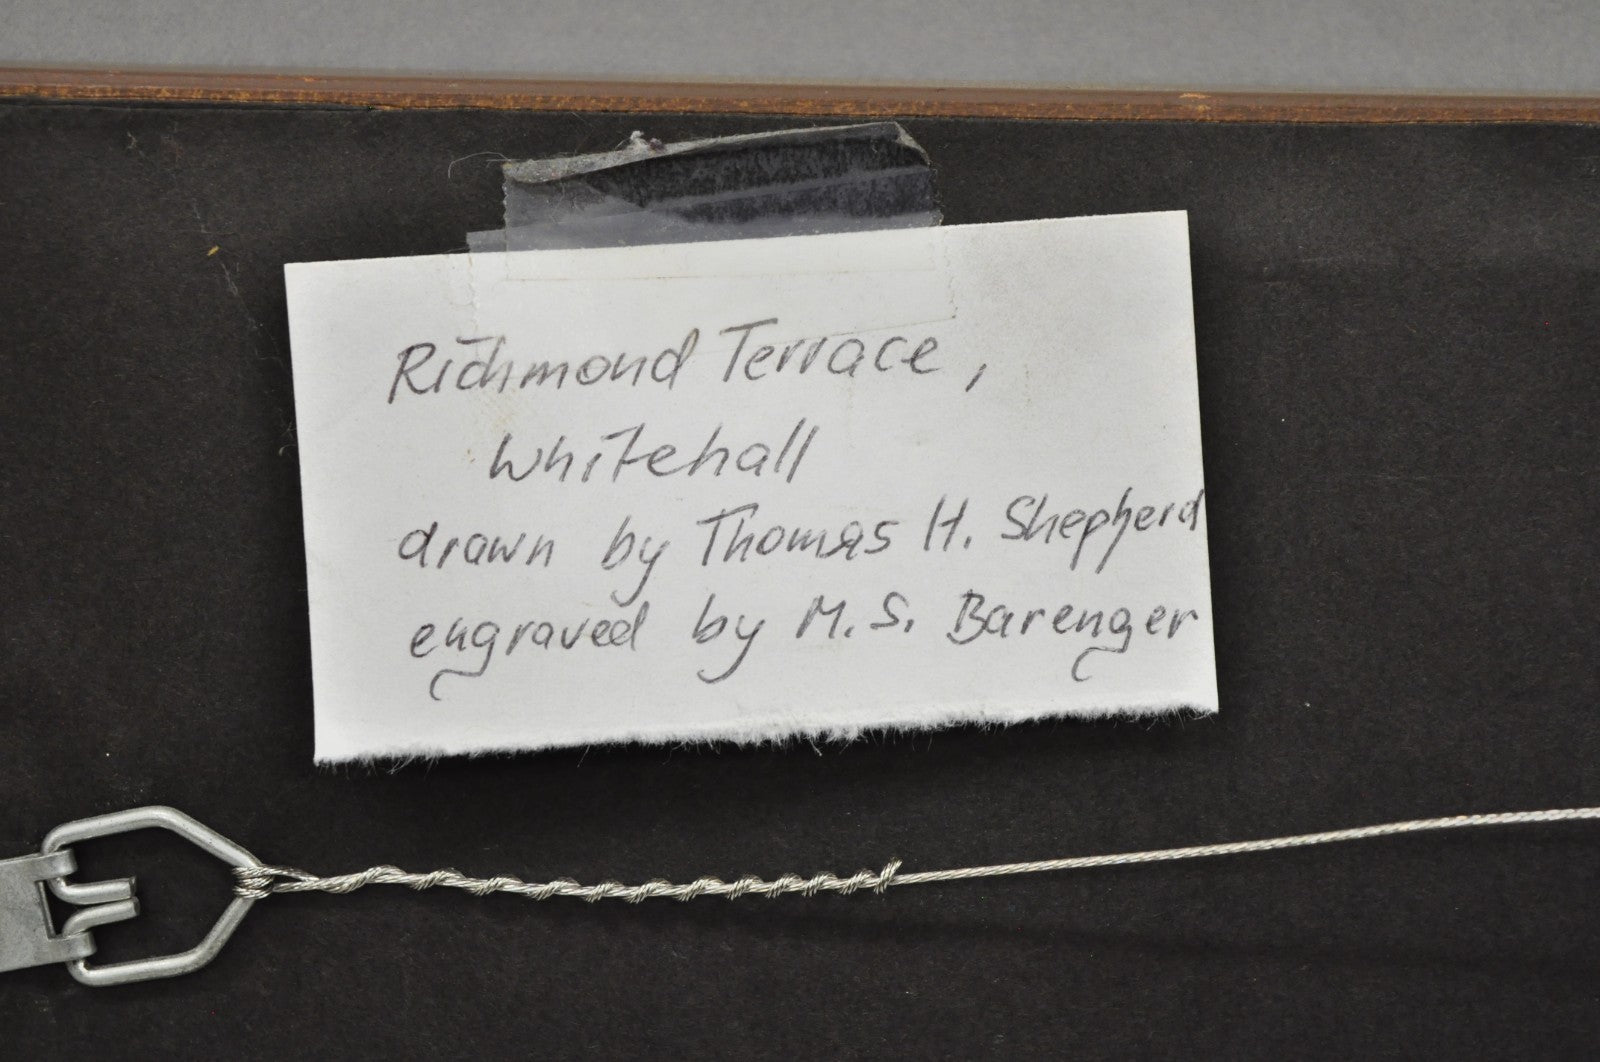 Richmond Terrace,
Whitehall
drawn by Thomas H. Shepherd
engraved by M. S. Barenger